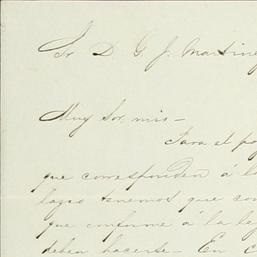 Sr D. G. J. Martine
Muy Sor. mio -
Para el pa
que corresponden á la
lazas tenemos que con
que conforme á la le
deben hacerse - En c